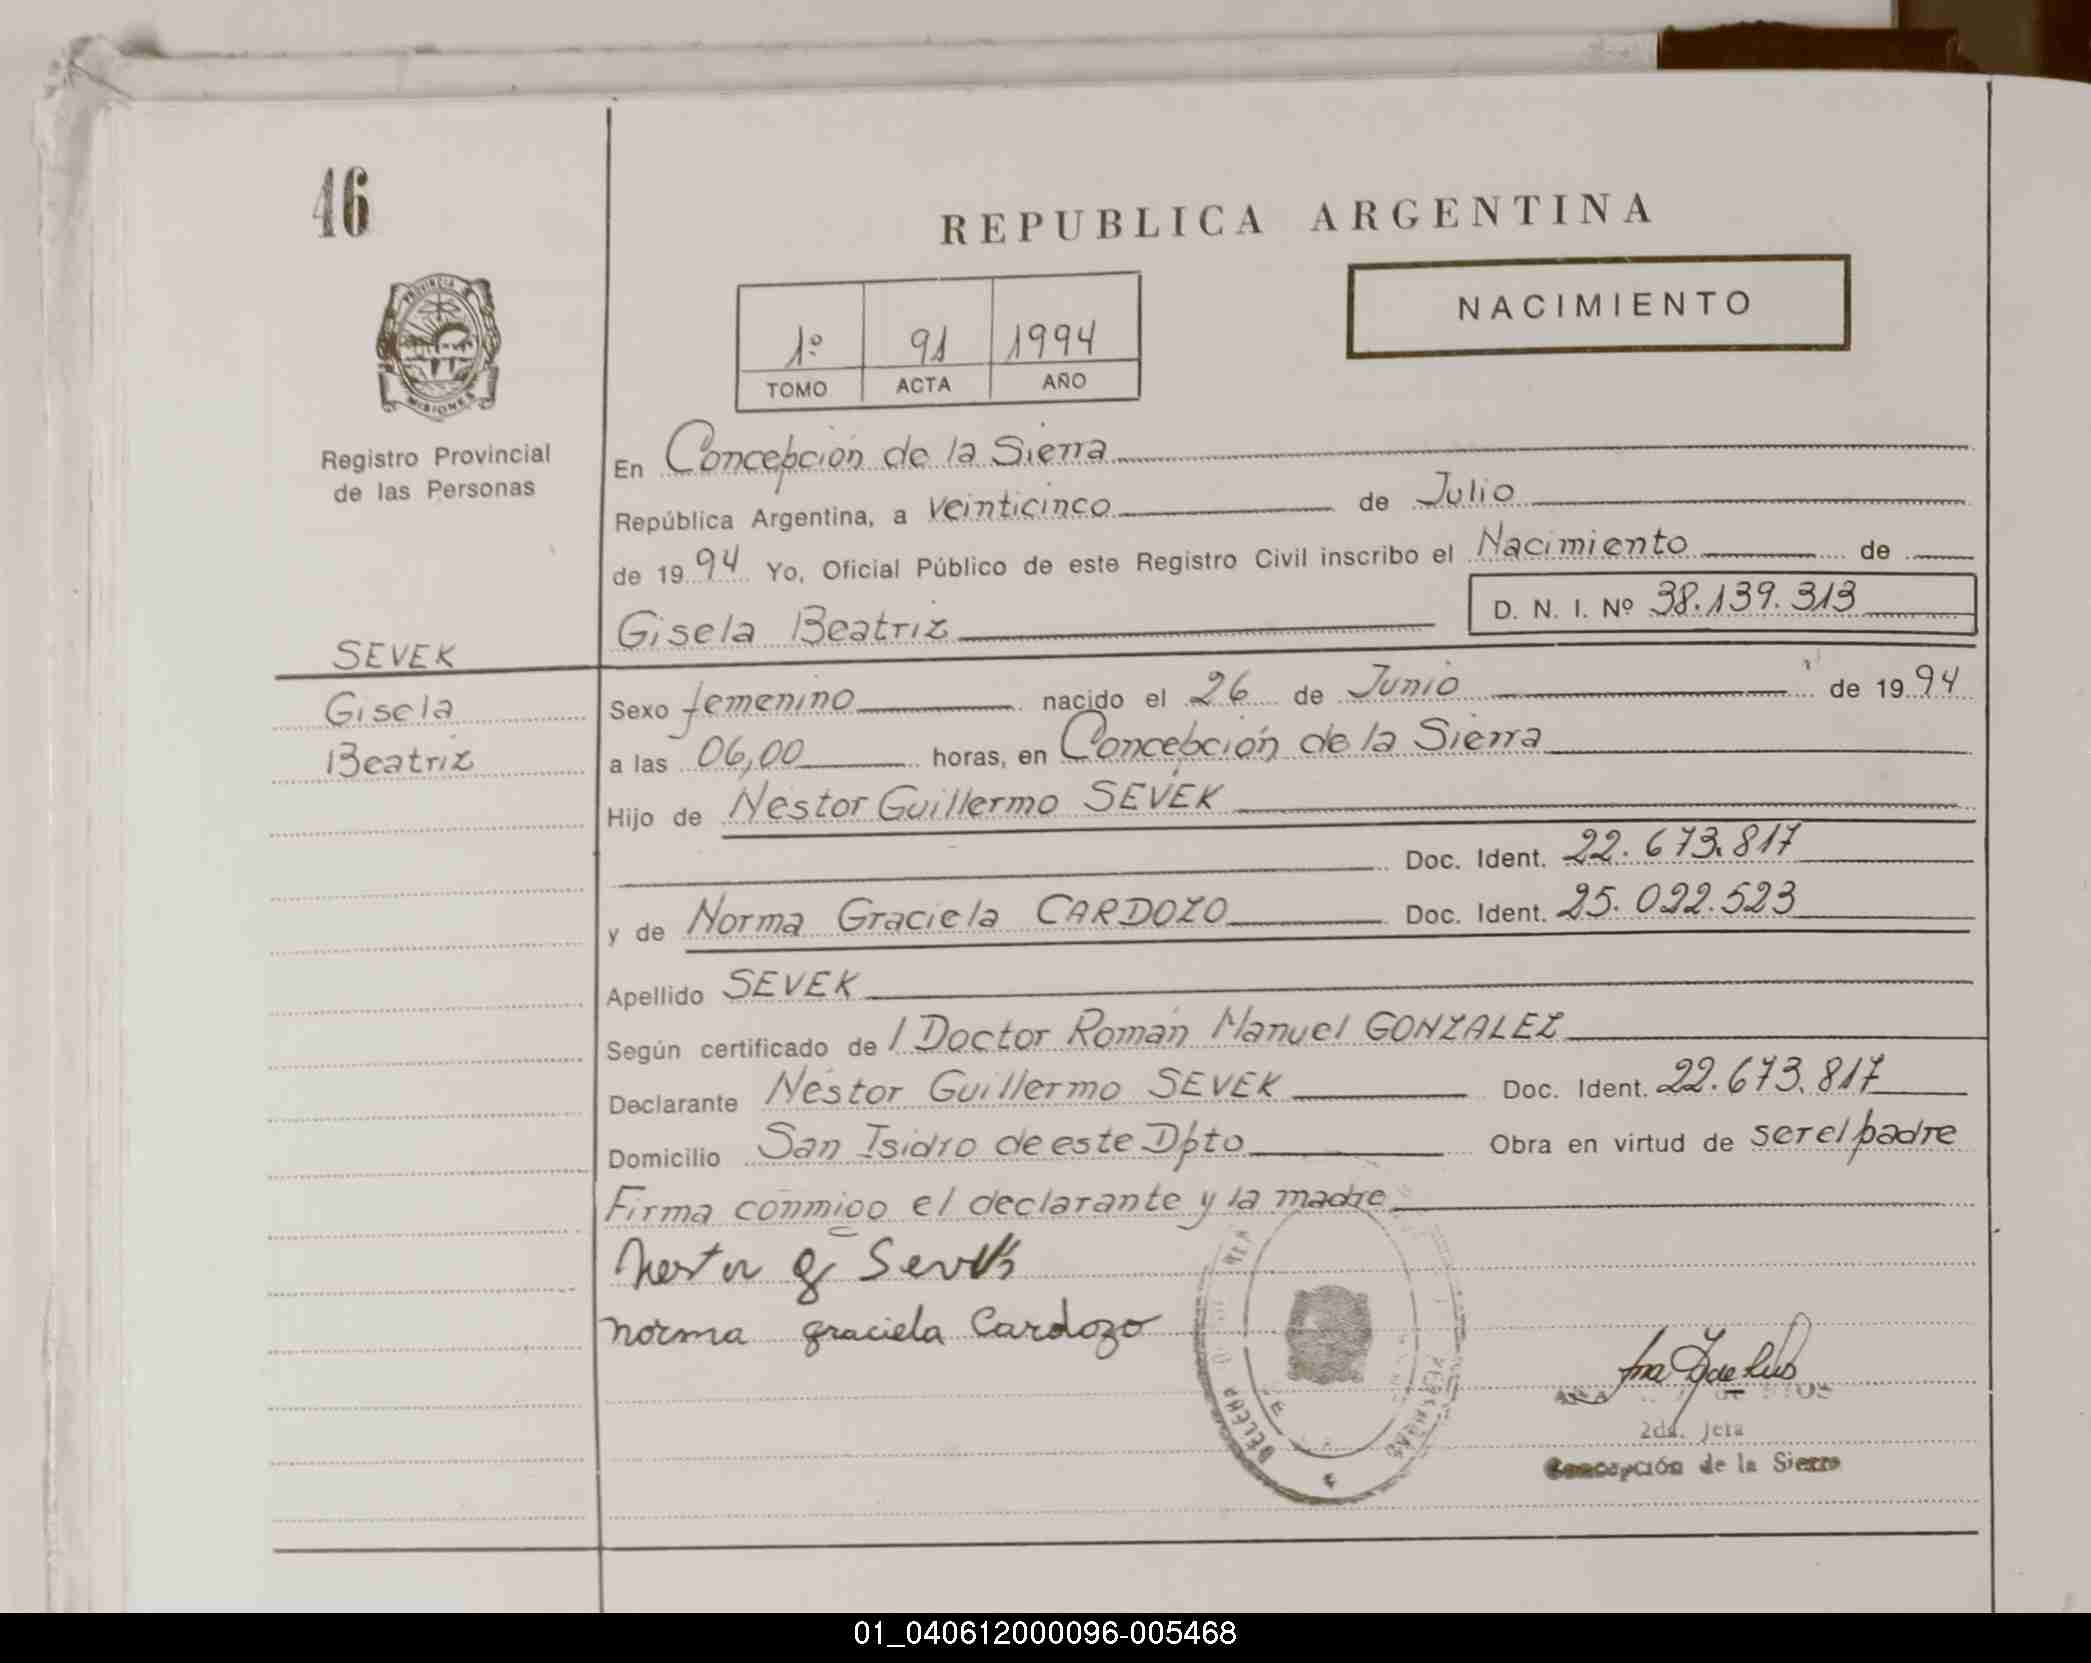 46
REPUBLICA ARGENTINA
NACIMIENTO
1º 91 1994
TOMO ACTA AÑO
PROVINCIA DE
MISIONES
Registro Provincial
de las Personas
En Concepción de la Sierra
República Argentina, a veinticinco de Julio
de 1994 Yo, Oficial Público de este Registro Civil inscribo el Nacimiento de
Gisela Beatriz D. N. I. Nº 38.139.313
SEVEK
Gisela
Beatriz
Sexo femenino nacido el 26 de Junio de 1994
a las 06,00 horas, en Concepción de la Sierra
Hijo de Néstor Guillermo SEVEK
Doc. Ident. 22.673.817
y de Norma Graciela CARDOZO Doc. Ident. 25.022.523
Apellido SEVEK
Según certificado del Doctor Román Manuel GONZALEZ
Declarante Néstor Guillermo SEVEK Doc. Ident. 22.673.817
Domicilio San Isidro de este Dpto Obra en virtud de ser el padre
Firma conmigo el declarante y la madre
Nestor g Sevek
norma graciela Cardozo
2da. Jefa
Concepción de la Sierra
01_040612000096-005468